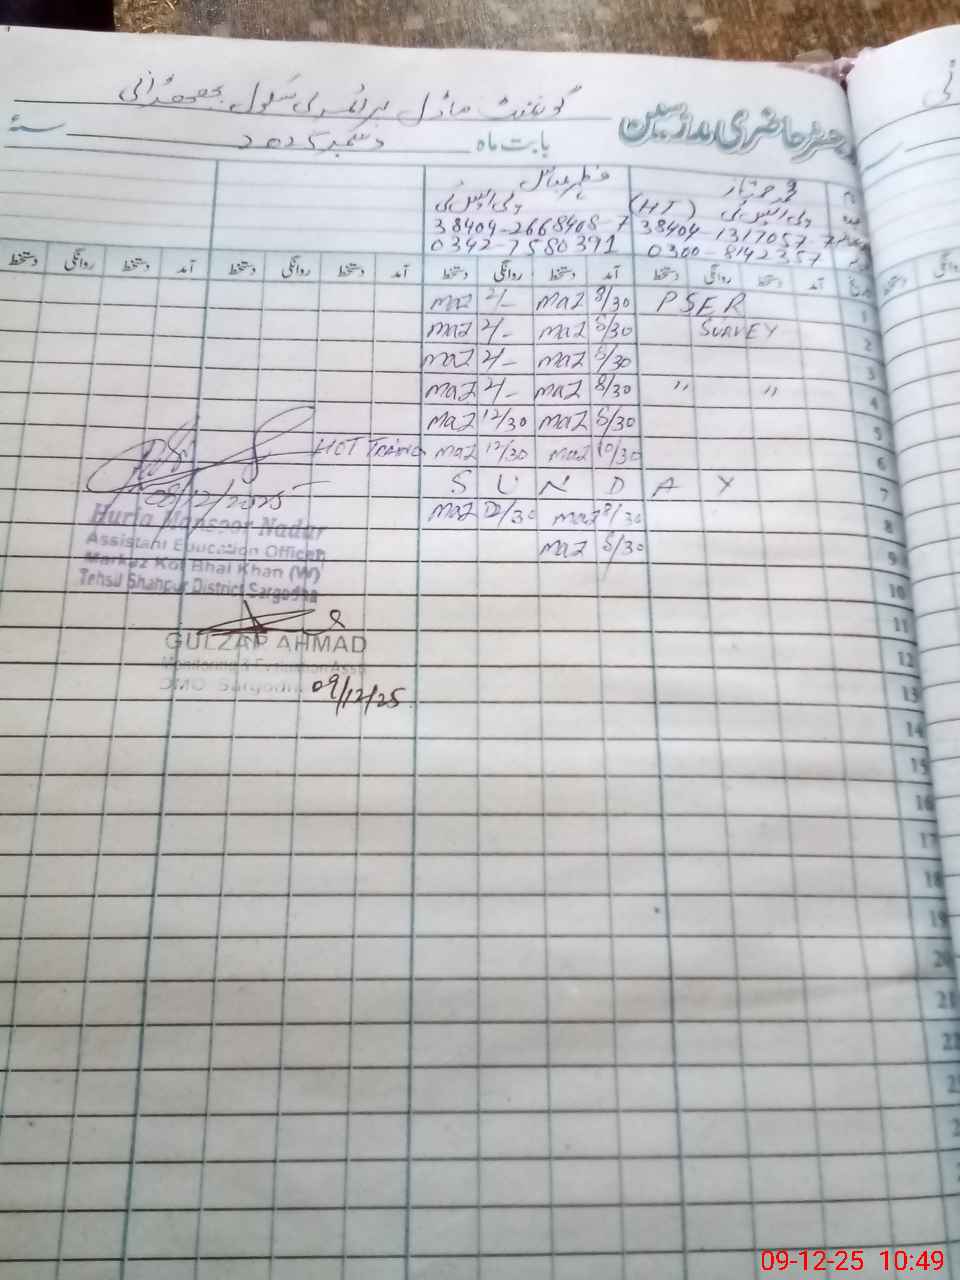 گورنمنٹ ماڈل پرائمری سکول
رجسٹر حاضری مدرسین
بابت ماہ دسمبر 2025 سنہ
(HT) پی ایس ٹی
پی ایس ٹی
38404-1317057-7
38404-2668408-7
0300-8142257
0342-7580391
آمد دستخط روانگی دستخط آمد دستخط روانگی دستخط آمد دستخط روانگی دستخط آمد دستخط روانگی دستخط
1 PSER 8/30 maz 2/- maz
2 SURVEY 8/30 maz 2/- maz
3 8/30 maz 2/- maz
4 " " 8/30 maz 2/- maz
5 8/30 maz 12/30 maz
6 10/30 maz 12/30 maz
7 S U N D A Y
8 8/30 maz 12/30 maz
9 8/30 maz
10
11
12
13
14
15
16
17
18
19
20
21
22
08/12/2025
Huria Mansoor Nadar
Assistant Education Officer
Markaz Kot Bhai Khan (W)
Tehsil Shahpur District Sargodha
GULZAR AHMAD
Monitoring & Evaluation Assi
DMO Sargodha
09/12/25
09-12-25 10:49